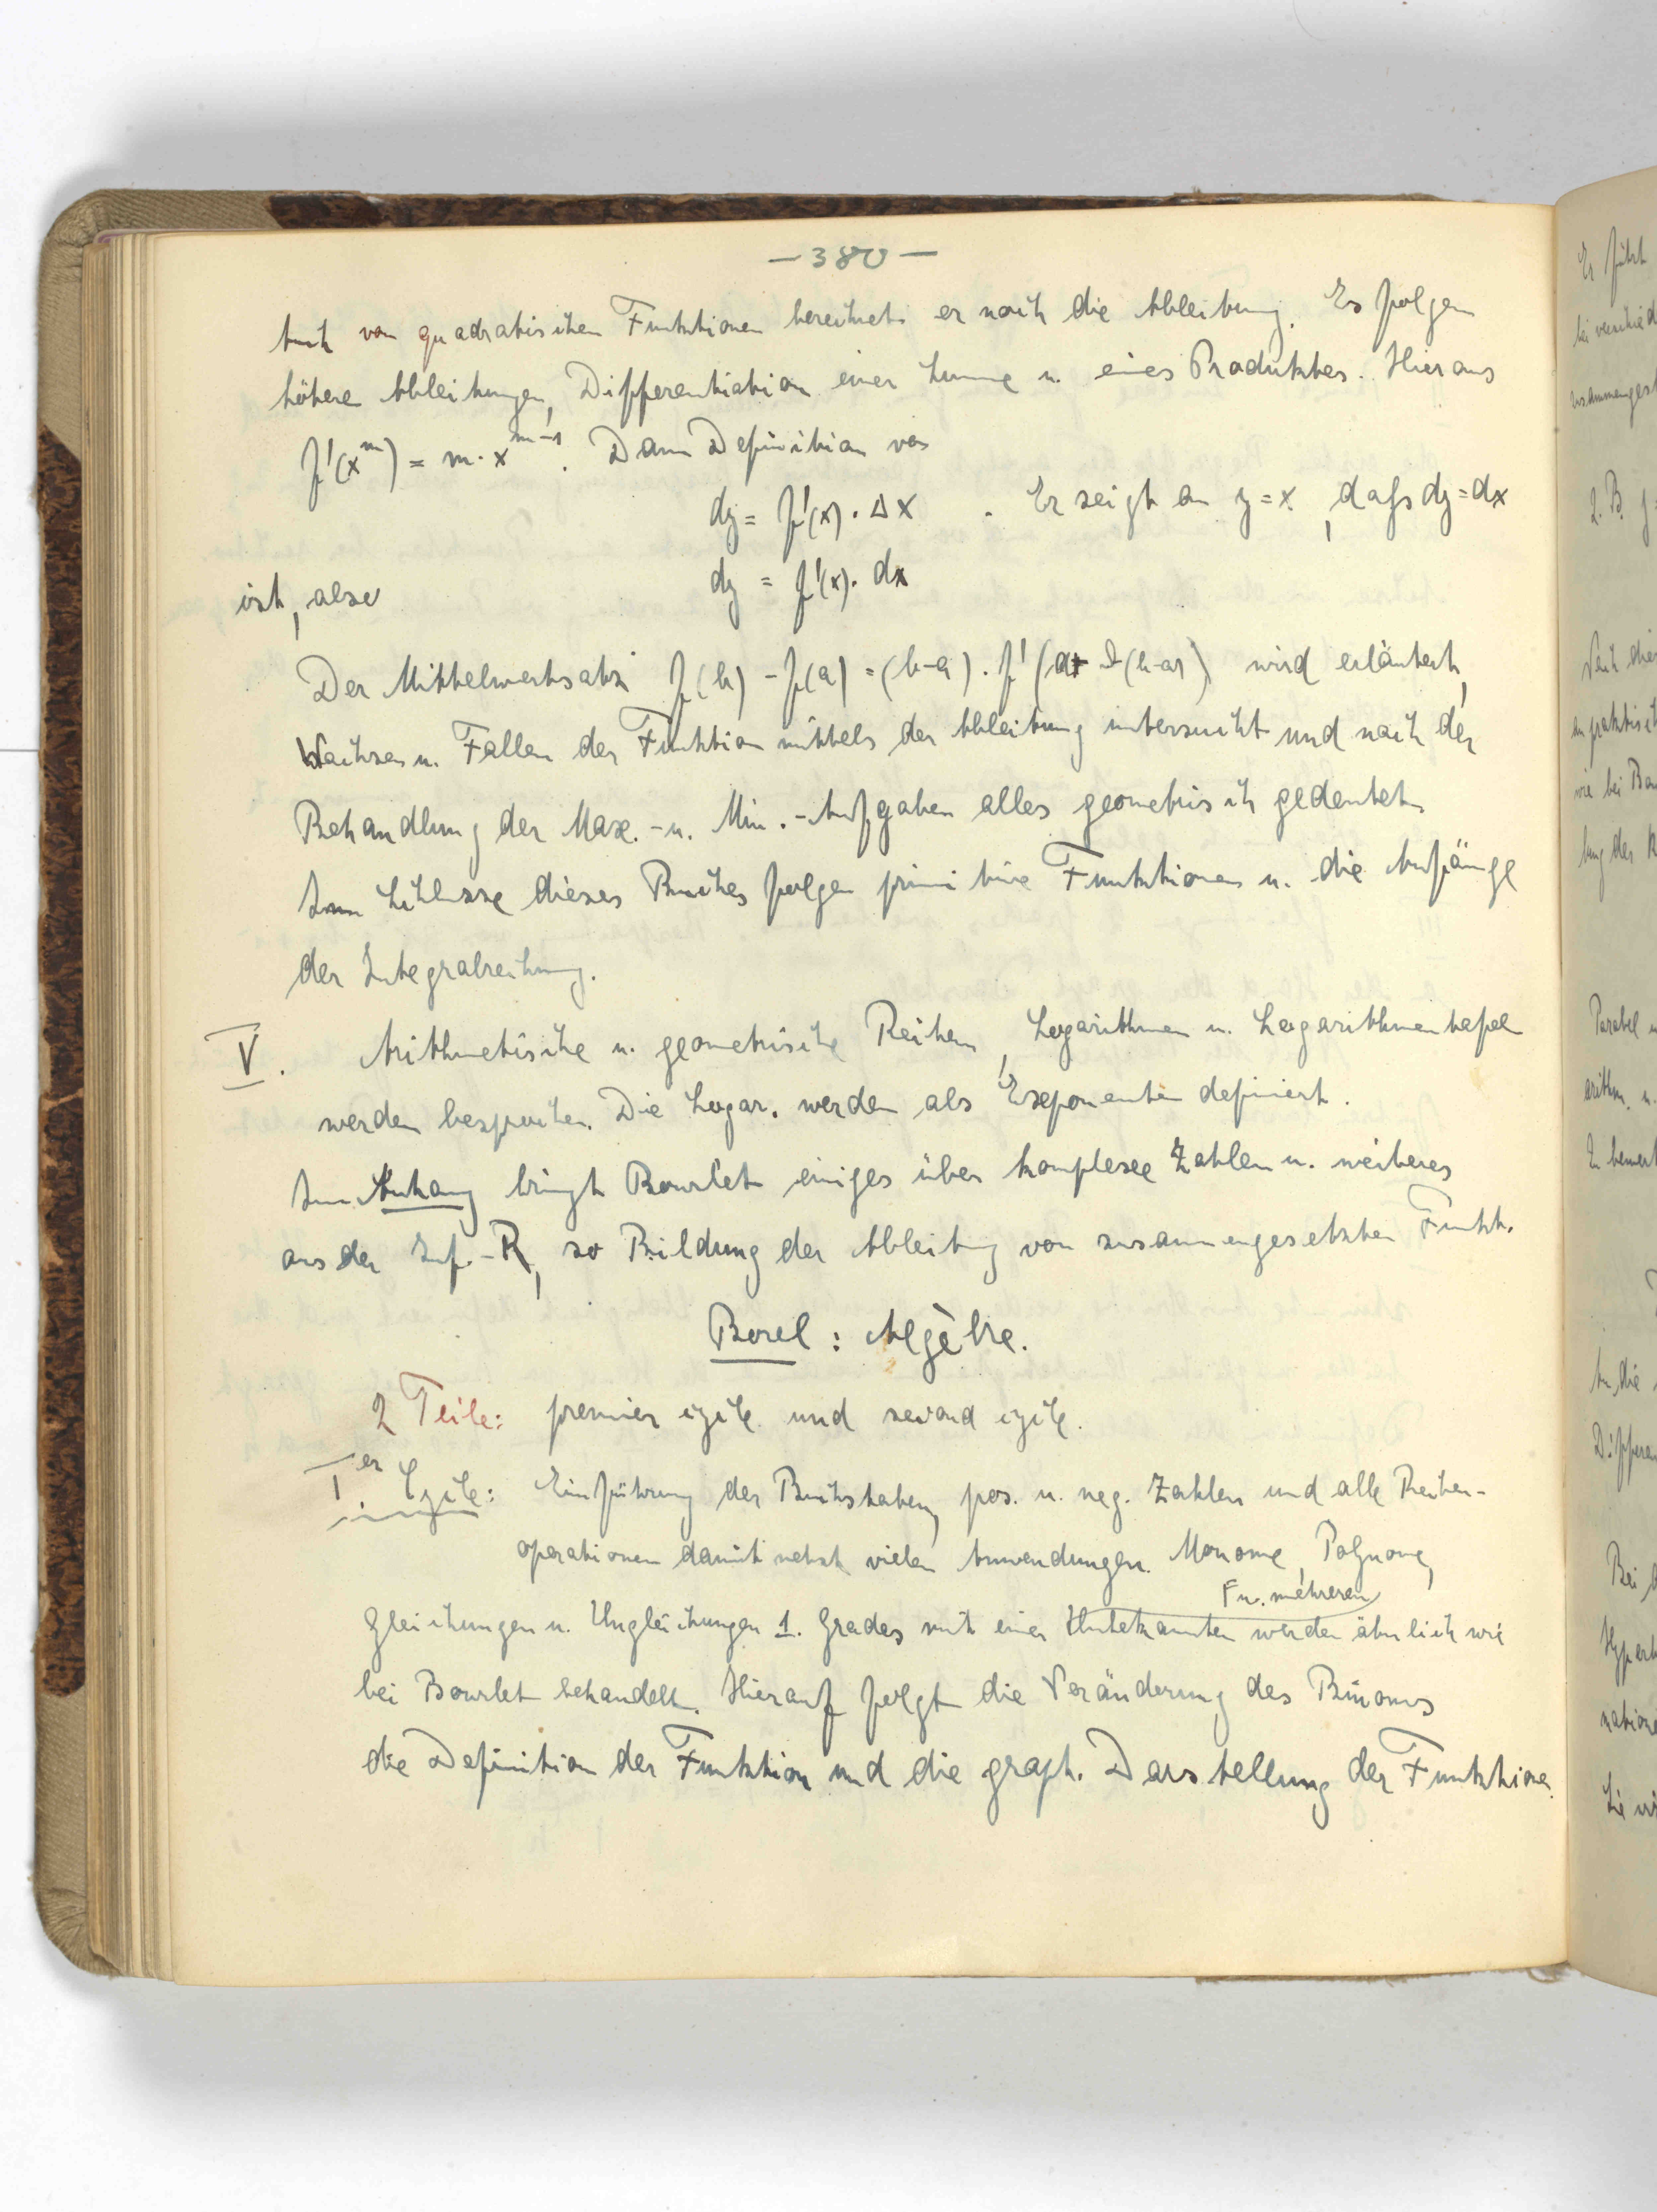 — 380 —
Auch von quadratischen Funktionen berechnet er noch die Ableitung. Es folgen
höhere Ableitungen, Differentiation einer Summe u. eines Produktes. Hieraus
f'(x^m) = m · x^{m-1}. Dann Definition von
dy = f'(x) · Δx . Er zeigt an y = x, dafs dy = dx
ist, also dy = f'(x) · dx
Der Mittelwertsatz f(b) - f(a) = (b-a) · f'(a + ϑ(b-a)) wird erläutert,
Wachsen u. Fallen der Funktion mittels der Ableitung untersucht und nach der
Behandlung der Max. - u. Min. - Aufgaben alles geometrisch gedeutet.
Zum Schlusse dieses Buches folgen primitive Funktionen u. die Anfänge
der Integralrechnung.
V. Arithmetische u. geometrische Reihen, Logarithmen u. Logarithmentafeln
werden besprochen. Die Logar. werden als Exponenten definiert.
Im Anhang bringt Bourlet einiges über komplexe Zahlen u. weiteres
aus der Inf. - R, so Bildung der Ableitung von zusammengesetzten Funkt.
Borel : Algèbre.
2 Teile: premier cycle und second cycle.
I^er Cycle: Einführung der Buchstaben, pos. u. neg. Zahlen und alle Rechen-
operationen damit nebst vielen Anwendungen. Monome, Polynome,
u. mehreren
Gleichungen u. Ungleichungen 1. Grades mit einer Unbekannten werden ähnlich wie
bei Bourlet behandelt. Hierauf folgt die Veränderung des Binoms
die Definition der Funktion und die graph. Darstellung der Funktionen.